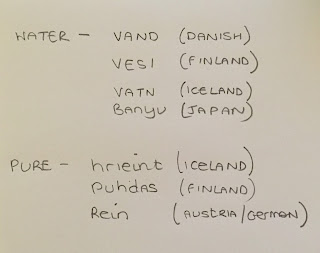 WATER - VAND (DANISH)
VESI (FINLAND)
VATN (ICELAND)
BANYU (JAPAN)
PURE - hrieint (ICELAND)
Puhdas (FINLAND)
Rein (AUSTRIA/GERMAN)